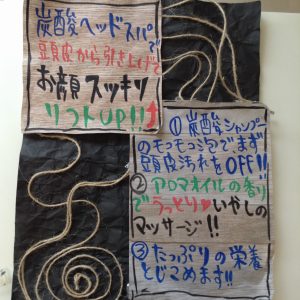 炭酸ヘッドスパで
頭皮から引き上げて
お顔スッキリ
リフトUP!!↑
①炭酸シャンプー
のモコモコ泡でまず
頭皮汚れをOFF!!
②アロマオイルの香り
でうっとり♥いやしの
マッサージ!!
③たっぷりの栄養
とじこめます!!